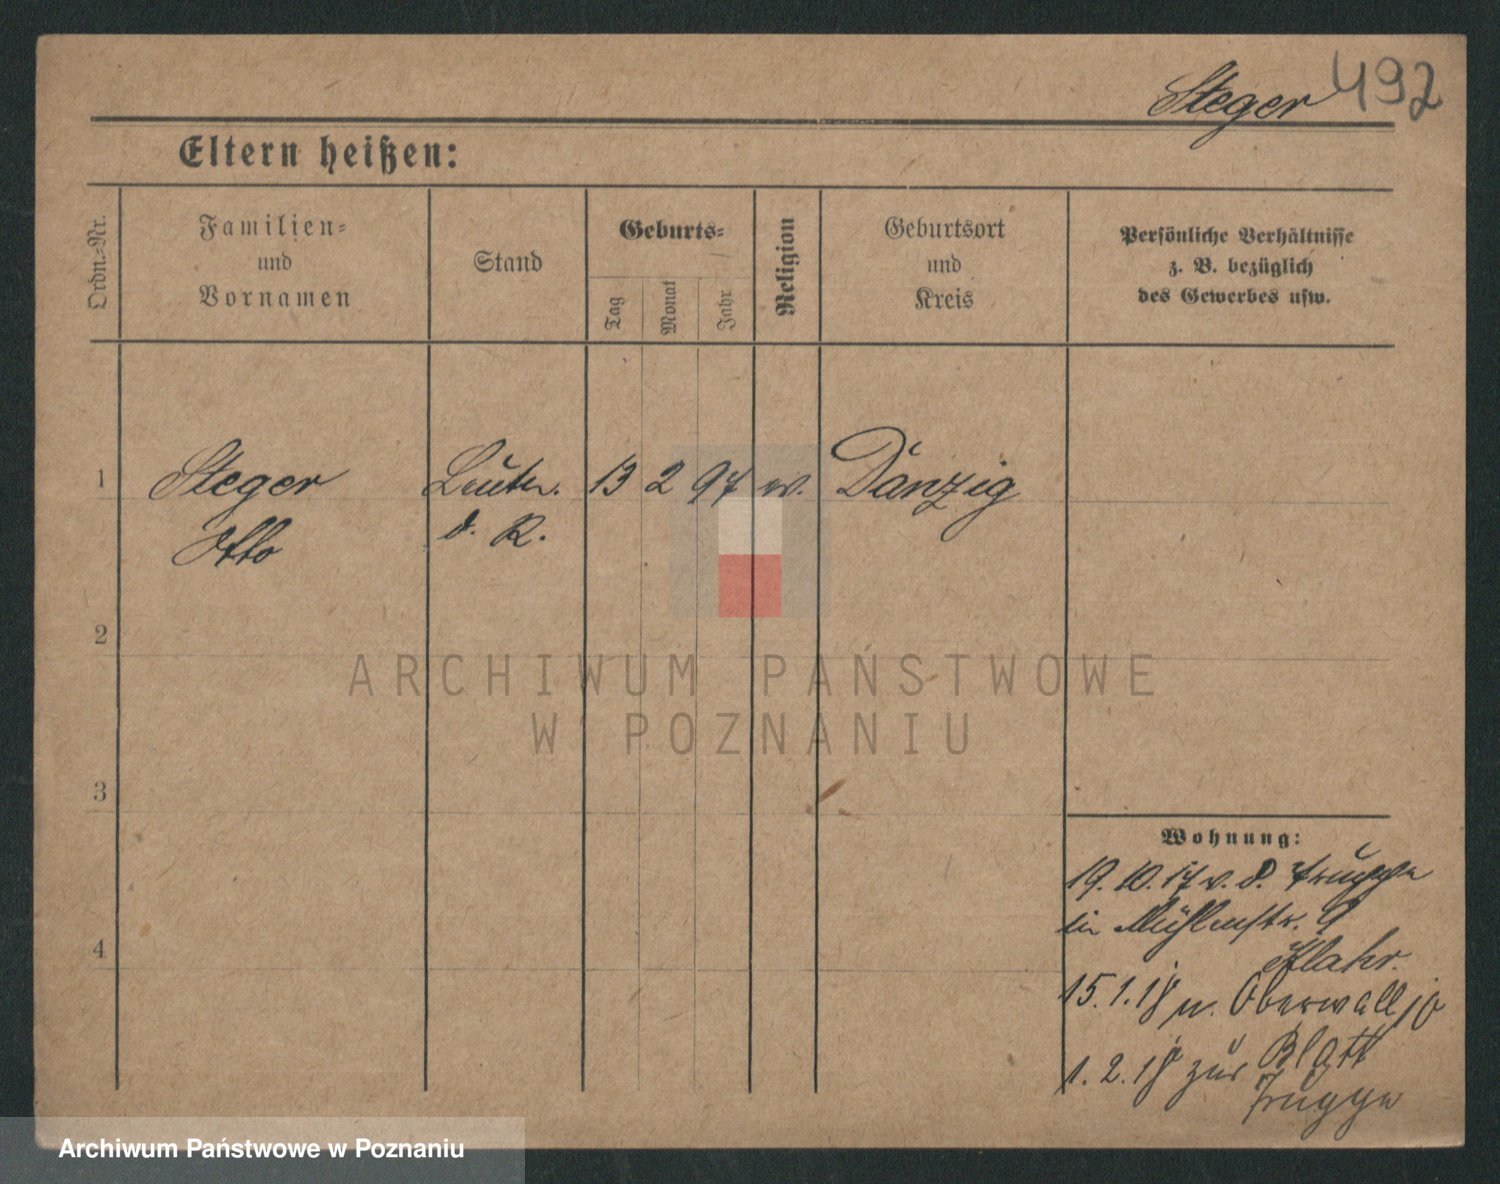 Steger 492
Eltern heißen:
Ordn.-Nr.
Familien-
und
Vornamen
Stand
Geburts-
Tag
Monat
Jahr
Religion
Geburtsort
und
Kreis
Persönliche Verhältnisse
z. B. bezüglich
des Gewerbes usw.
1 Steger Leutn. 13 2 97 ev. Danzig
Otto d. R.
2
3
4
ARCHIWUM PAŃSTWOWE
W POZNANIU
Wohnung:
19.10.17 v. d. Truppe
in Mühlenstr. 9
15.1.18 n. Oberwall
Blatt
1.2.18 zur Truppe
Archiwum Państwowe w Poznaniu